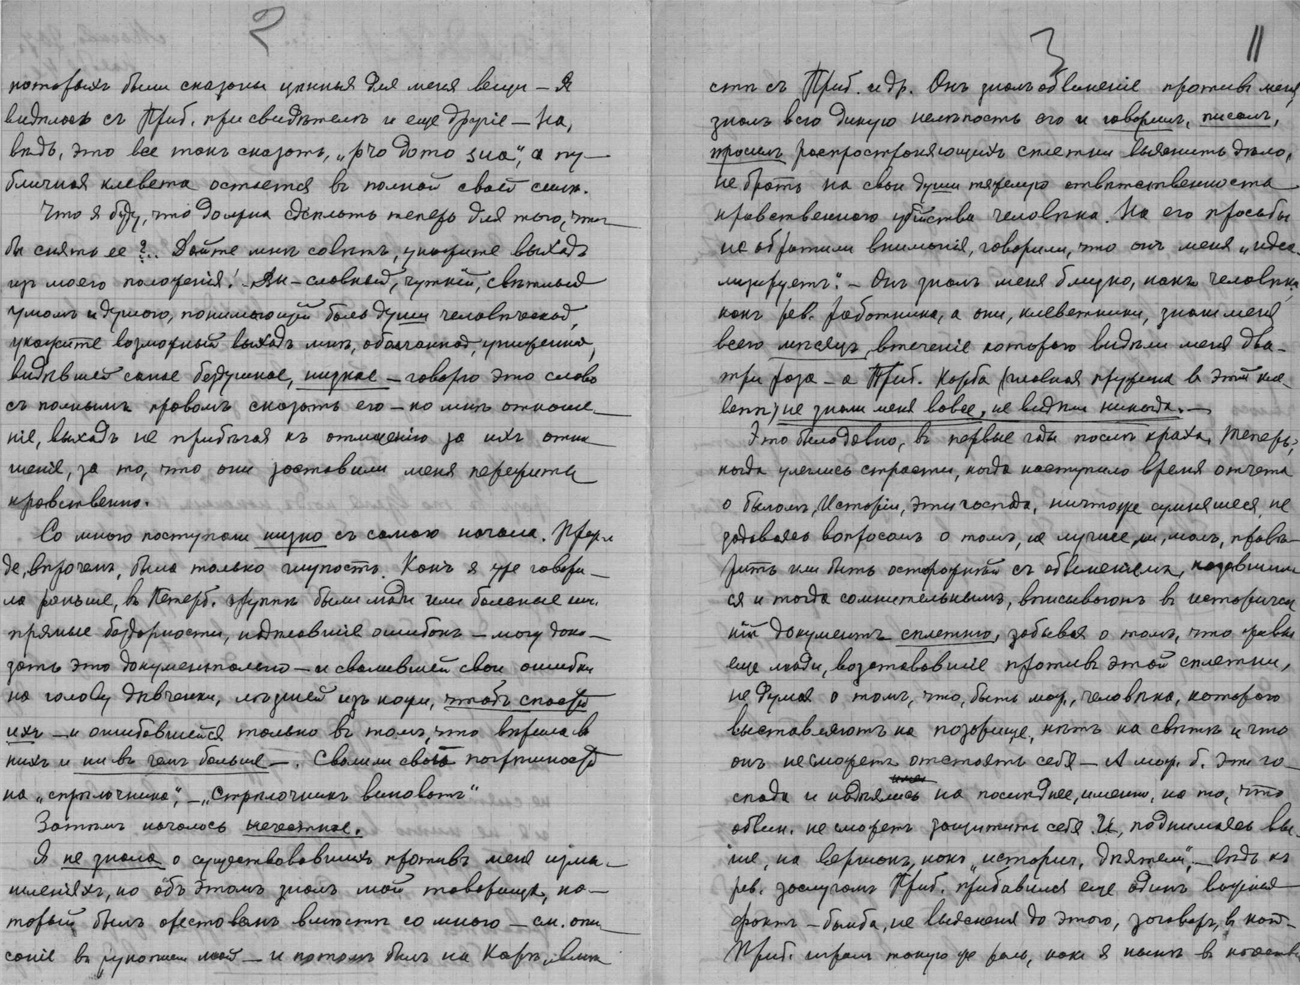 2
которыхъ были сказаны ценныя для меня вещи – Я
виделась съ Приб. при свидетеле и еще другіе – На,
ведь, это все такъ сказать, а пу-
бличная клевета остается въ полной своей силе.
Что я буду, что должна сделать теперь для того, что
бы снять ее?.. Дайте мне советъ, укажите выходъ
изъ моего положенія! Вы – славный, чуткій, светлый
умомъ и душою, понимающій боль души человеческой,
укажите возможный выходъ мне, оболганной, униженной,
видевшей самое бездушное, низкое – говорю это слово
съ полнымъ правомъ сказать его – ко мне отноше-
ніе, выходъ не прибегая къ отмщенію за ихъ отно
шенія, за то, что они заставили меня пережить
нравственно.
Со мною поступали низко съ самаго начала. Преж
де, впрочемъ, была только глупость. Какъ я уже говори-
ла раньше, въ Петерб. группе были люди или больные или
прямые бездарности, наделавшіе ошибокъ – могу дока-
зать это документально – и свалившей свои ошибки
на голову девченки, лезшей изъ кожи, чтобъ спасти
ихъ – и ошибавшейся только въ томъ, что верила въ
нихъ и ни въ чемъ больше –. Свалили свои погрешности
на „стрелочника“, – „Стрелочникъ виноватъ“
Затемъ началось нечестное.
Я не знала о существовавшихъ противъ меня измы-
шленіяхъ, но объ этомъ зналъ мой товарищъ, ко-
торый былъ арестованъ вместе со мною – см. опи
саніе въ рукописи моей – и потомъ былъ на Каре,
3
11
сте съ Приб. и др. Онъ зналъ обвиненіе противъ меня
зналъ всю дикую нелепость его и говорилъ, писалъ,
просилъ распространяющихъ сплетни выяснить дело,
не брать на свои души тяжелую ответственность
нравственного убійства человека. На его просьбы
не обратили вниманія, говорили, что онъ меня „идеа-
лизируетъ“. – Онъ зналъ меня близко, какъ человека,
какъ рев. работника, а они, клеветники, знали меня
всего месяцъ, втеченіе которого видели меня два-
три раза – а Приб. Карба (главная пружина въ этой кле-
вете) не знали меня вовсе, не видели никогда. –
Это было давно, въ первые годы после краха. Теперь,
когда улеглись страсти, когда наступило время отчета
о быломъ, Исторіи, эти господа, ничтоже сумняшеся не
задаваясь вопросомъ о томъ, не лучше ли, молъ, прове
рить или быть осторожнымъ съ обвиненіемъ, казавшим
ся и тогда сомнительнымъ, вписываютъ въ историчес
кій документъ сплетню, забывая о томъ, что живы
еще люди, возстававшіе противъ этой сплетни,
не думая о томъ, что, быть мож., человека, которого
выставляютъ на позорище, нетъ на свете и что
онъ не сможетъ отстоять себя – А мож. б. эти го-
спода и надеялись на последнее, именно, на то, что
обвин. не сможетъ защитить себя. И, поднимаясь вы-
ше, на вершокъ, какъ „историч. деятели“, – ведь къ
рев. заслугамъ Приб. прибавился еще одинъ
фактъ – бомба, не выясненъ до этого, заговоръ, въ кот.
Приб. игралъ такую же роль, какъ я ныне въ качестве